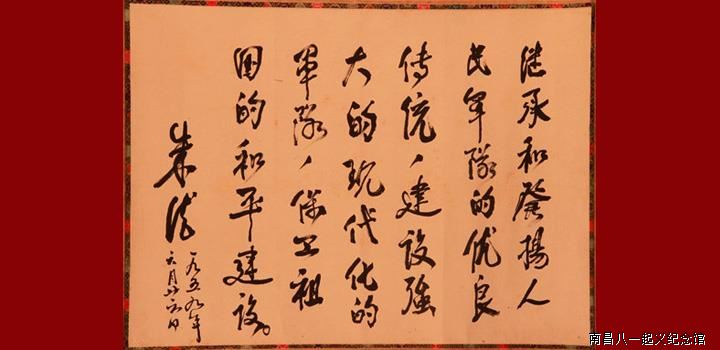 继承和發揚人
民军隊的优良
传统，建设强
大的现代化的
軍隊，保卫祖
国的和平建设。
朱德
一九五九年
六月廿六日
南昌八一起义纪念馆